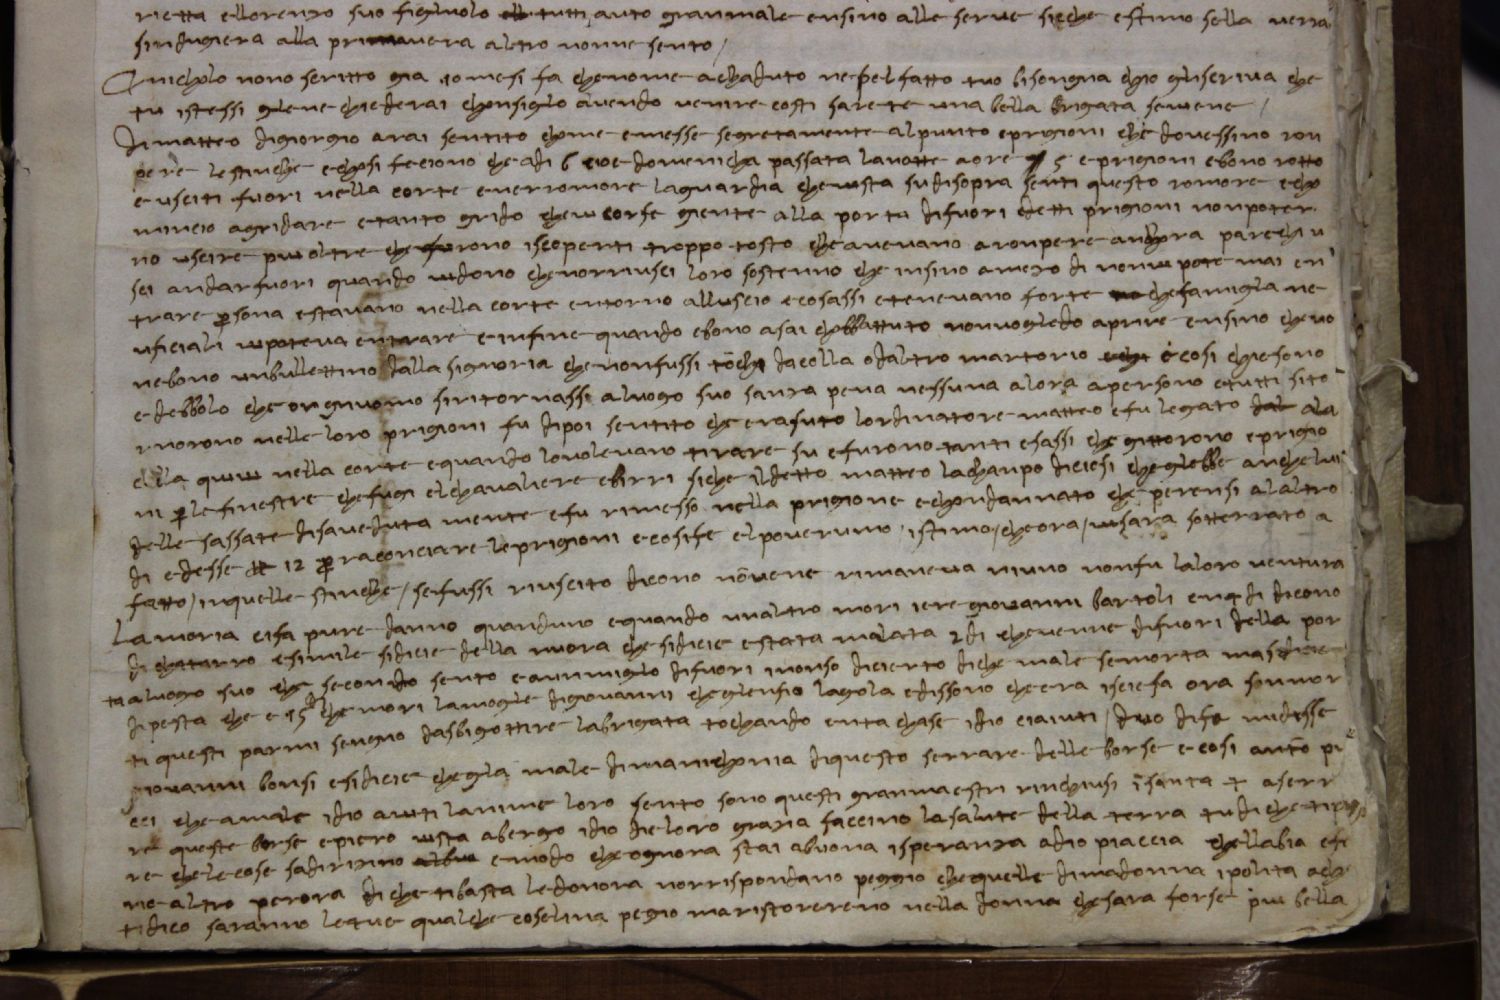 rietta ellorenzo suo figluolo tutti auto granmale ensino alle serve sicche estimo sella verra
sindugiera alla primavera altro nonne sento /
A nicholo nono scritto gia 10 mesi fa che nome achaduto ne pel fatto tuo bisongna chio gliscriva che
tu istessi gliene chiederai chonsiglo avendo venire costi sarete una bella brigata sevvene /
Di matteo digiorgio arai sentito chome emesse segretamente alpunto eprigioni che dovessino ron
pere lestinche echosi feciono che adi 6 cioe domenicha passata lanotte aore 5 eprigioni ebono rotto
e usciti fuori nella corte everromore laguardia chevista sudisopra senti questo romore echo
mincio agridare etanto grido chevvcorse giente alla porta difuori edetti prigioni nonpoter
no uscire piu oltre che furono iscoperti troppo tosto che avevano aronpere anchora parechi u
sci andarfuori quando vidono chenorriusci loro sostenno che insino amezo di nonvi pote mai en
trare persona estavano nella corte entorno alluscio ecosassi etenevano forte chefamigla ne
uficiali vipoteva entrare einfine quando ebono asai chonbattuto nonvogledo aprire ensino cheno
nebono unbullettino dalla signoria chenonfussi tocho dacolla odaltro martorio ecosi chiesono
edebbolo che ongnuomo siritornassi aluogo suo sanza pena nessuna alora apersono etutti sito
rnorono nelle loro prigioni fu dipoi sentito che erasuto lordinatore matteo efu legato ala
colla quivi nella corte equando lovolevano tirare su efurono tanti esassi che gittorono eprigio
ni per lefinestre chefugi elchavaliere ebirri siche ildetto matteo lachanpo dicosi cheglebbe anchelui
delle sassate disaveduta mente efu rimesso nella prigione echondannato che perensi alaltro
di edesse 12 per raconciare leprigioni ecosife elpoverino / istimo / cheora / visara sotterrato a
fatto / inquelle stinche / sefussi riuscito dicono nonvene rimaneva niuno nonfu laloro ventura
La moria cifa pure danno quanduno equando unaltro mori iere giovanni bartoli en 4 di dicono
di chatarro esimile sidicie della nuora chesidicie estata malata 2 di chevenne difuori della por
ta aluogo suo che secondo sento eaunmiglo difuori inonso dicierto dicche male semorta masidicie
dipesta che e 15 di chemori lamogle digiovanni cheglenfio lagola edissono cheera isciesa ora sonmor
ti questi parmi sengno dasbigottire labrigata tochando entachase idio ciaiuti / duo dise midisse
giovanni bonsi esidicie chegla male dimaninchonia diquesto serrare delle borse ecosi anton pu
cci che amale idio aiuti lanime loro sento sono questi granmaestri rinchiusi insanta + aserr
re queste borse epiero vista abergo idio dieloro grazia faccino lasalute della terra tudi chetipi
re chelecose sadirizino emodo cheognora stai abuona isperanza adio piaccia chellabia efe
ne altro perora diche tibasta ledonora norrispondano peggio chequelle dimadonna ipolita ache
tidico saranno letue qualche coselina pegio maristorereno nella donna chesara forse piu bella